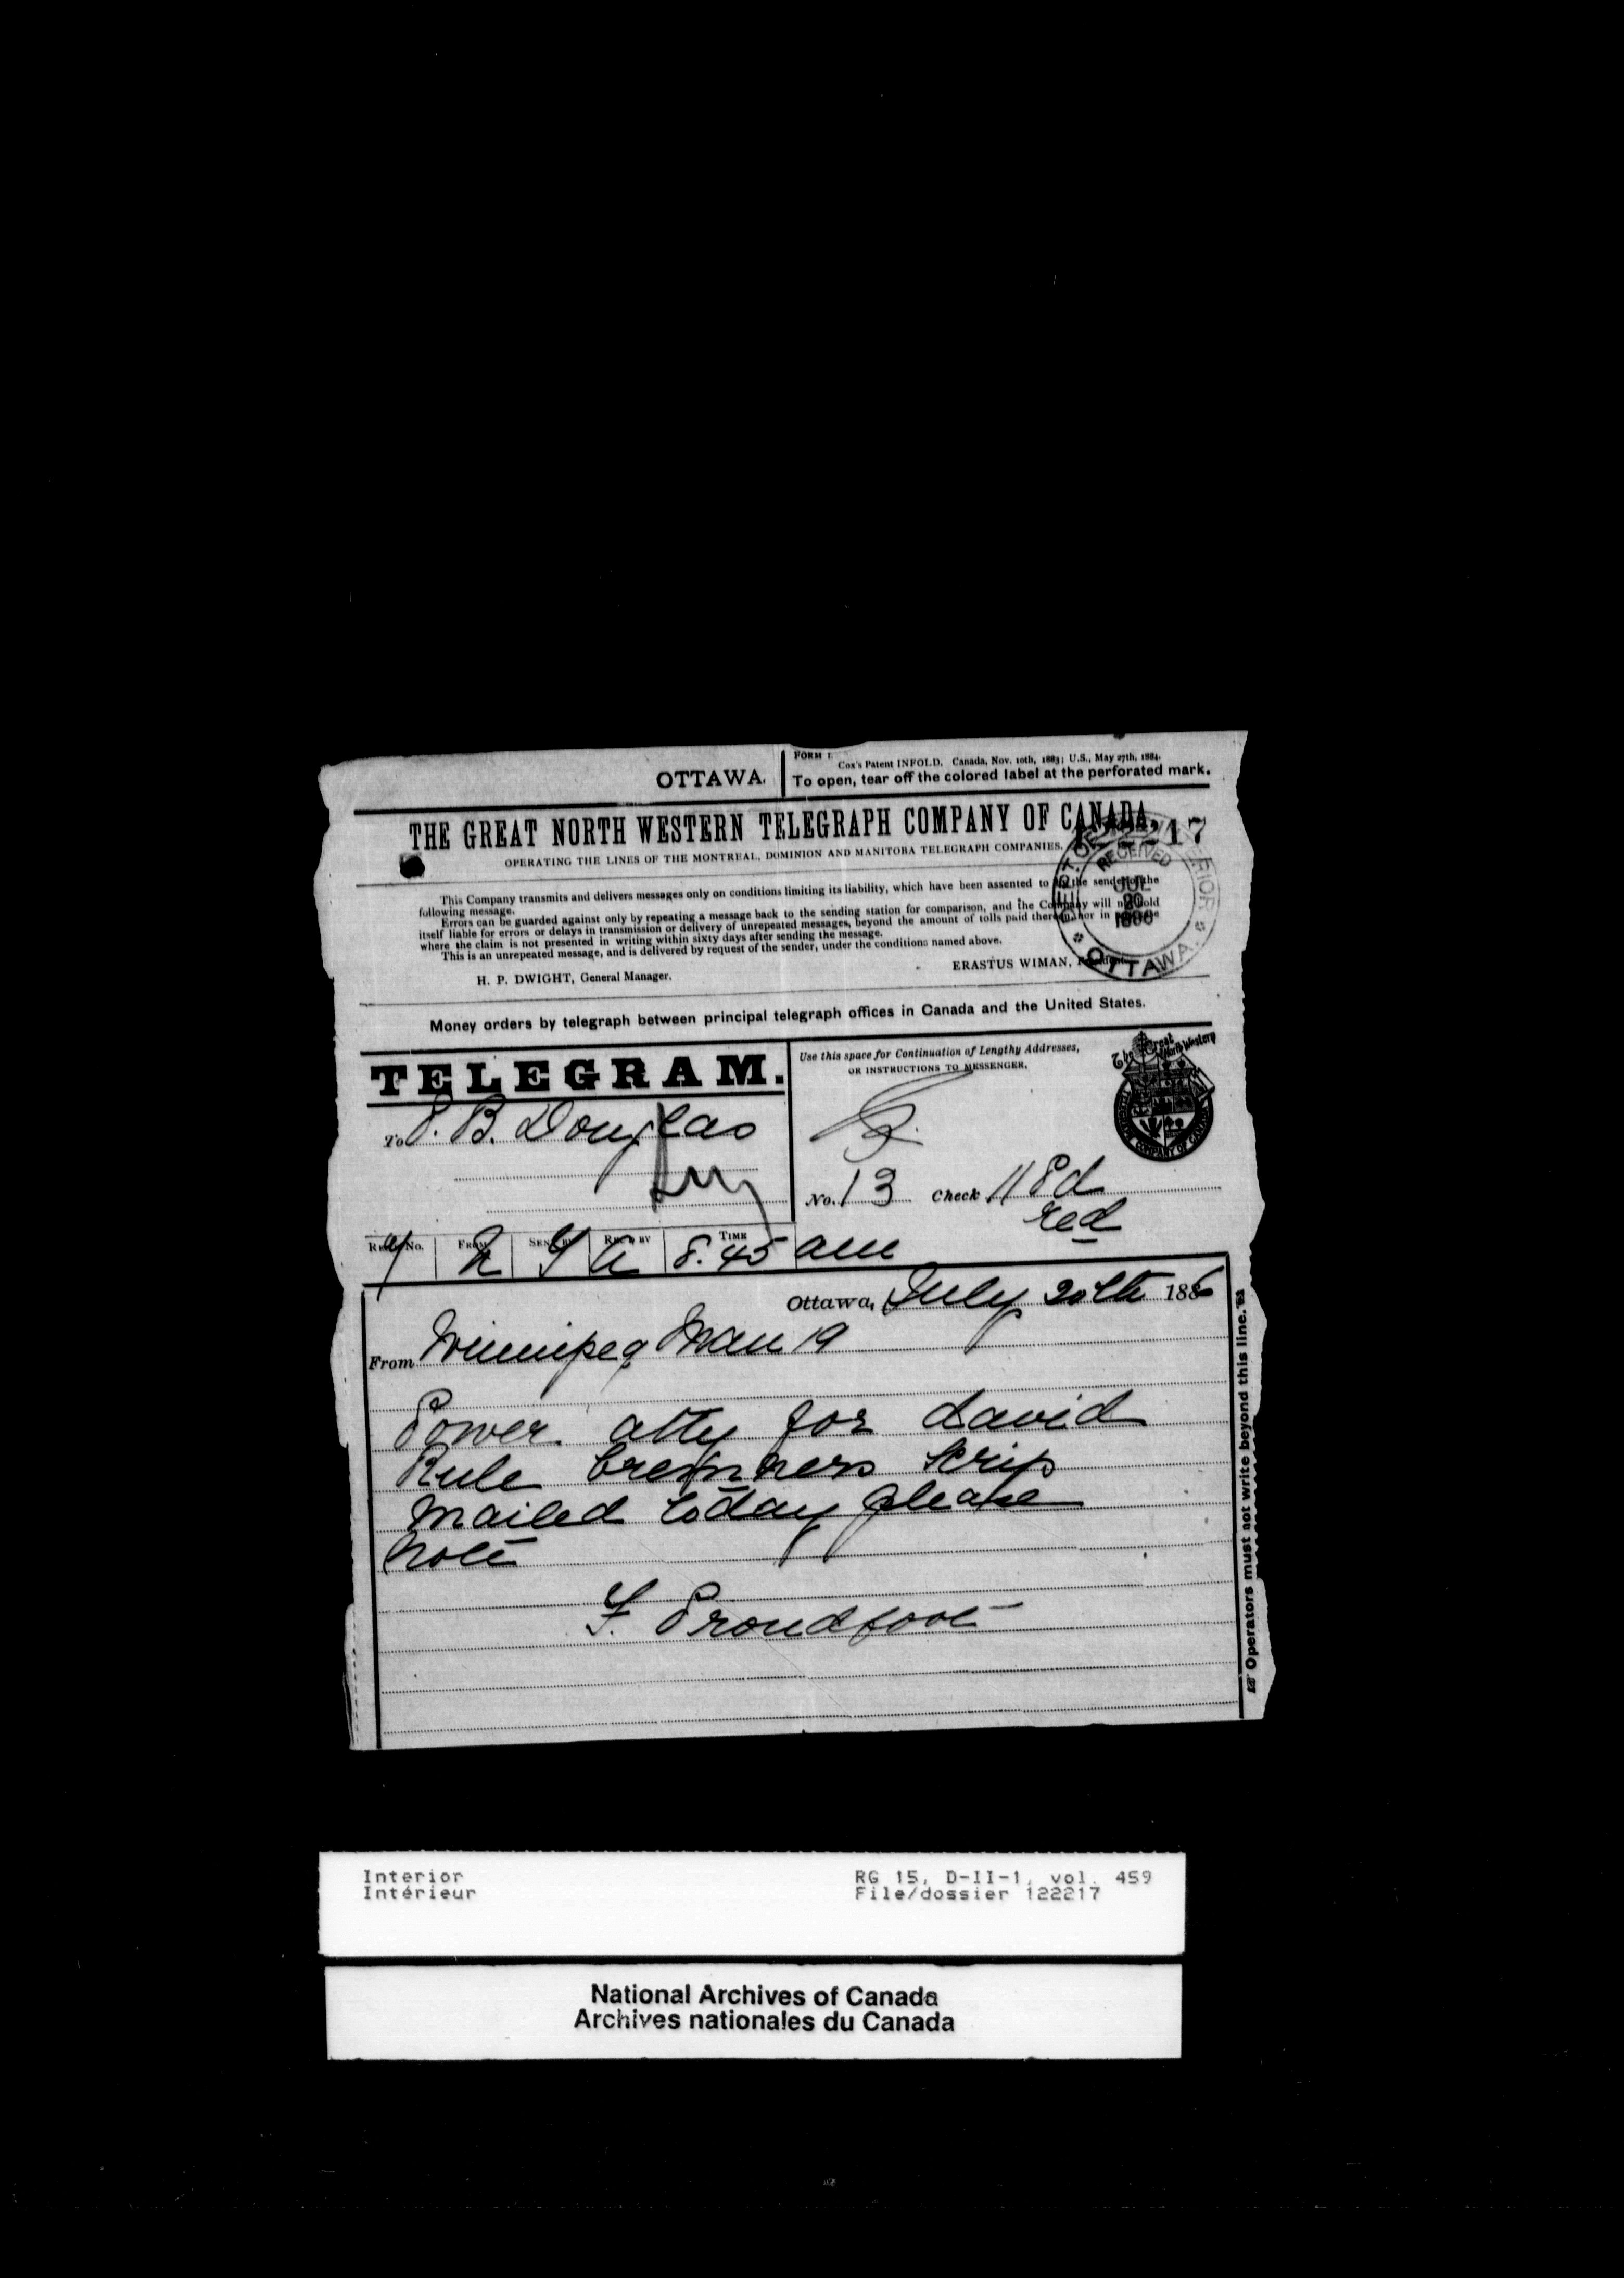 OTTAWA.
FORM 1.
Cox's Patent INFOLD. Canada, Nov. 10th, 1883; U.S., May 27th, 1884.
To open, tear off the colored label at the perforated mark.
THE GREAT NORTH WESTERN TELEGRAPH COMPANY OF CANADA,
122217
OPERATING THE LINES OF THE MONTREAL, DOMINION AND MANITOBA TELEGRAPH COMPANIES.
RECEIVED
JUL
20
1886
OTTAWA.
This Company transmits and delivers messages only on conditions limiting its liability, which have been assented to by the sender of the
following message.
Errors can be guarded against only by repeating a message back to the sending station for comparison, and the Company will not hold
itself liable for errors or delays in transmission or delivery of unrepeated messages, beyond the amount of tolls paid thereon, nor in
where the claim is not presented in writing within sixty days after sending the message.
This is an unrepeated message, and is delivered by request of the sender, under the conditions named above.
H. P. DWIGHT, General Manager.
ERASTUS WIMAN, President.
Money orders by telegraph between principal telegraph offices in Canada and the United States.
TELEGRAM.
Use this space for Continuation of Lengthy Addresses,
OR INSTRUCTIONS TO MESSENGER.
The Great North Western
TELEGRAPH COMPANY OF CANADA
To P. B. Douglas
No. 13 Check 11 Pd
red
FROM SENT BY REC'D BY TIME
8.45 am
Ottawa, July 20th 1886
From Winnipeg Man 19
Power atty for david
Rule bremners scrip
mailed today please
note
F. Proudfoot
Operators must not write beyond this line.
Interior
Intérieur
RG 15, D-II-1, vol. 459
File/dossier 122217
National Archives of Canada
Archives nationales du Canada